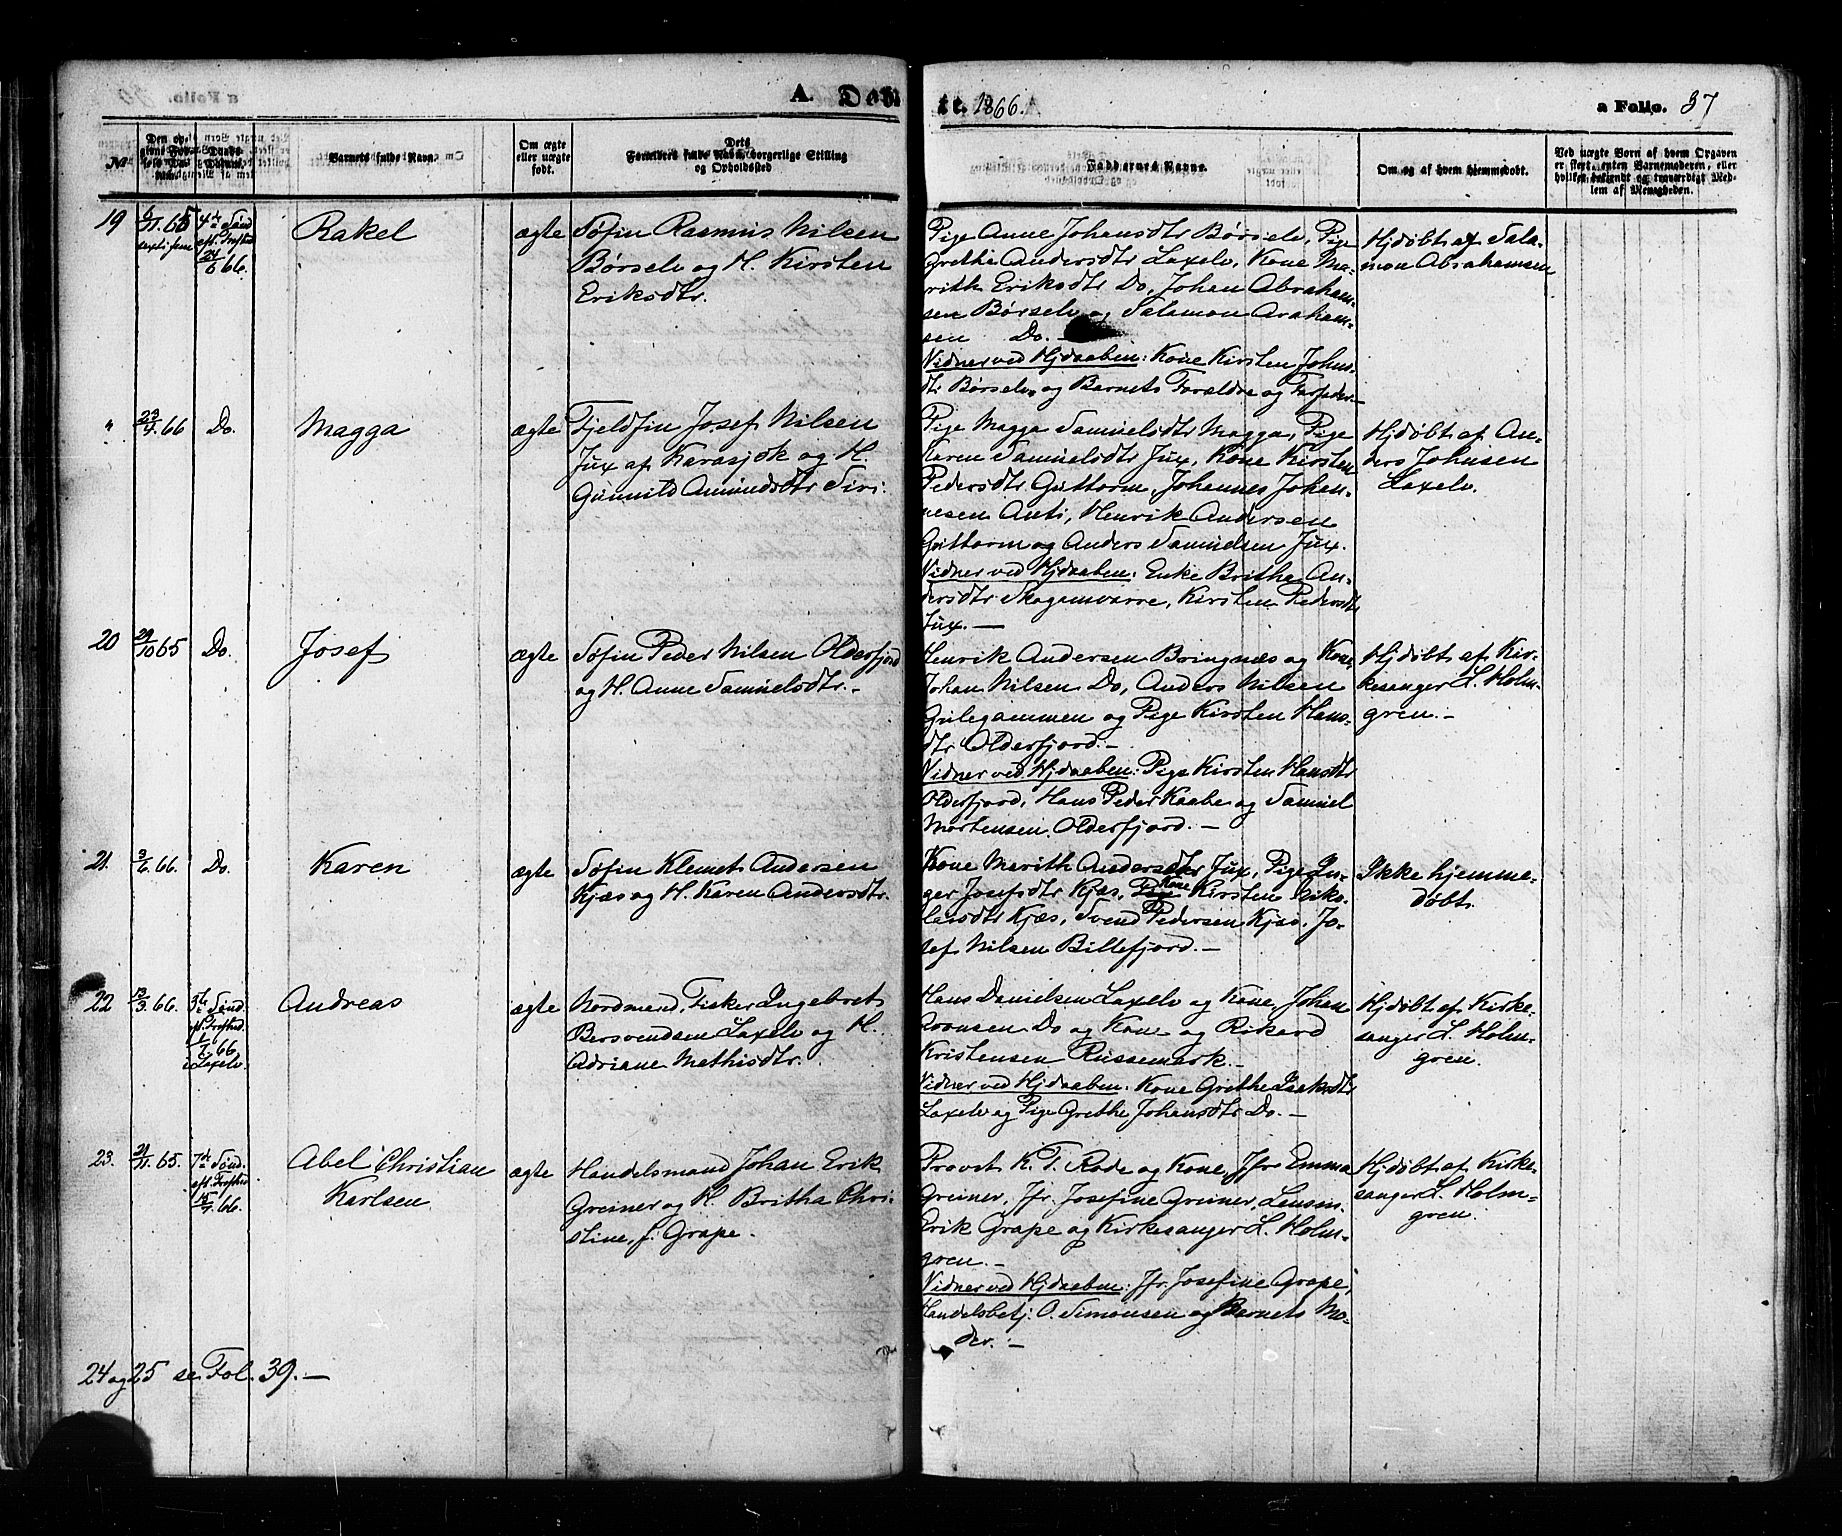 A. Døbte. 1866. a Folio. 37
No
Barnets fulde Navn.
Om ægte eller uægte født.
Dets Forældres fulde Navn, borgerlige Stilling og Opholdssted
Faddernes Navne.
Om og af hvem hjemmedøbt.
Ved uægte Børn af hvem Opgaven er skeet, enten Barnemoderen, eller hvilket bekjendt og troværdigt Medlem af Menigheden.
19
6/11. 65
4de Sønd
eft. Trefted
24/6 66.
Rakel
ægte
Søfin Rasmus Nilsen
Børselv og H. Kirsten
Eriksdtr.
Pige Anne Johansdtr Børselv, Pige
Grethe Andersdtr Laxelv, Kone Ma-
rith Eriksdtr Do, Johan Abraham-
sen Børselv og Salamon Araham-
sen Do. -
Vidner ved Hjdaaben: Kone Kirsten Johns-
dtr Børselv og Barnets Forældre og Farfader.-
Hjdøbt af Sala-
mon Abrahamsen
"
23/4. 66
Do.
Magga
ægte
Fjeldfin Josef Nilsen
Jux af Karasjok og H.
Gunnild Amundsdtr Siri.
Pige Magga Samuelsdtr Magga, Pige
Karen Samuelsdtr Jux, Kone Kirsten
Pedersdtr Guttorm, Johannes Johan-
nesen Anti, Henrik Andersen
Guttorm og Anders Samuelsen Jux.
Vidner ved Hjdaaben: Enke Britha An-
dersdtr Skoganvarre, Kirsten Pedersdtr
Jux. -
Hjdøbt af An-
ders Johnsen
Laxelv.
20
29/10 65
Do.
Josef
ægte
Søfin Peder Nilsen Olderfjord
og H. Anne Samuelsdtr. -
Henrik Andersen Bringnæs og Kone
Johan Nilsen Do, Anders Nilsen
Gulegammen og Pige Kirsten Hans-
dtr Olderfjord. -
Vidner ved Hjdaaben: Pige Kirsten Hansdtr
Olderfjord, Hans Peder Kaabe og Samuel
Mortensen Olderfjord. -
Hjdøbt af Kir-
kesanger L. Holm-
gren. -
21.
2/6. 66.
Do.
Karen
ægte
Søfin Klemet Andersen
Kjæs og H. Karen Andersdtr.
Kone Marith Andersdtr Jux, Pige In-
ger Josefsdtr Kjæs, Kone Kirsten Nisko-
lesdtr Kjæs, Svend Pedersen Kjæs, Jo-
sef Nilsen Billefjord. -
Ikke hjemme-
døbt.
22
12/3. 66.
5te Sønd
eft. Trefted.
1/7. 66
i Laxelv.
Andreas
ægte
Nordmand, Fisker Ingebret
Bersvendsen Laxelv og H.
Adriane Mathisdtr.
Hans Danielsen Laxelv og Kone, Johan
Aronsen Do og Kone og Rikard
Kristensen Russemark. -
Vidner ved Hjdaaben: Kone Grethe Isaksdtr
Laxelv og Pige Grethe Johansdtr Do. -
Hjdøbt af Kirke-
sanger L. Holm-
gren.
23.
21/11. 65.
7de Sønd.
eft. Trefted
15/7. 66.
Abel Christian
Karlsen
ægte
Handelsmand Johan Erik
Greiner og H. Britha Chri-
stine, f. Grape.
Provst K. T. Rode og Kone, Jfr Emma
Greiner, Jfr. Josefine Greiner, Lensm.
Erik Grape og Kirkesanger L. Holm-
gren. -
Vidner ved Hjdaaben: Jfr. Josefine Grape,
Handelsbetj. O. Simonsen og Barnets Mo-
der. -
Hjdøbt af Kirke-
sanger L. Holm-
gren.
24 og 25 se Fol. 39. -